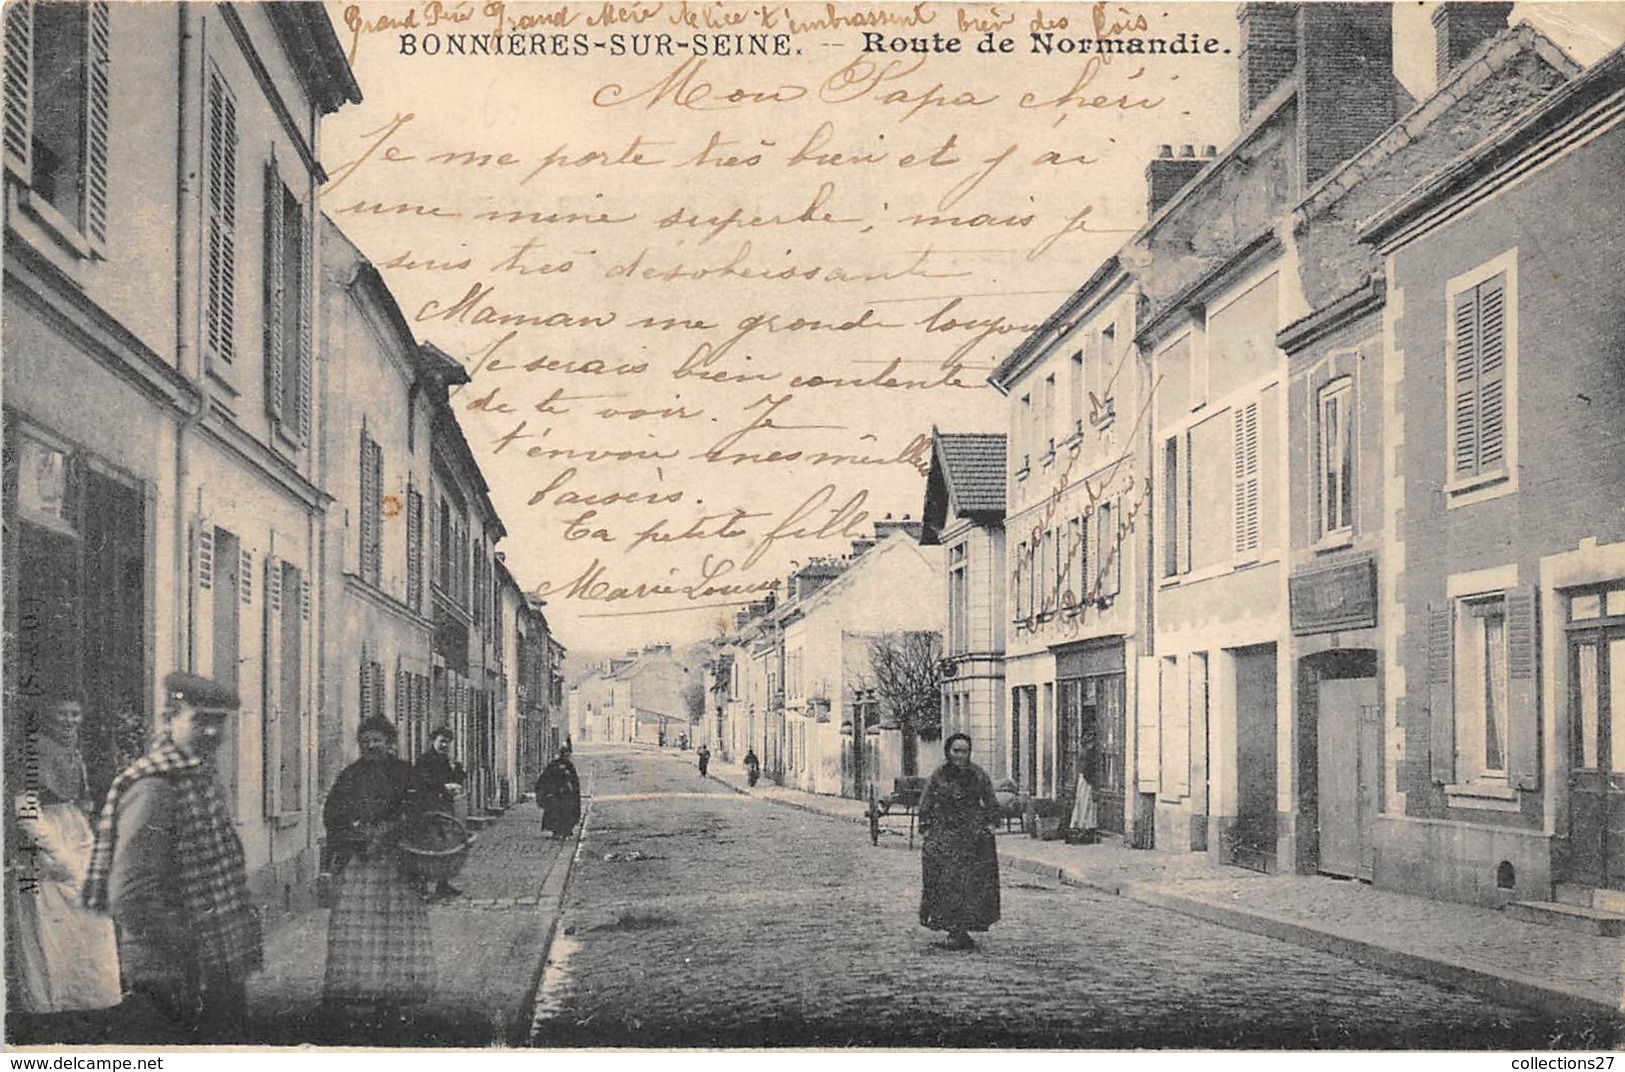 Grand Père Grand Mère Alice t'embrassent bien des fois
BONNIÈRES-SUR-SEINE. -- Route de Normandie.
Mon Papa chéri.
Je me porte très bien et j'ai
une mine superbe; mais je
suis très désobeissante.
Maman me gronde toujours
Je serais bien contente
de te voir. Je
t'envoie mes meilleurs
baisers.
Ta petite fille
Marie Louise
maison d
M.-F. Bonnières (S.-&-O.)
collections27